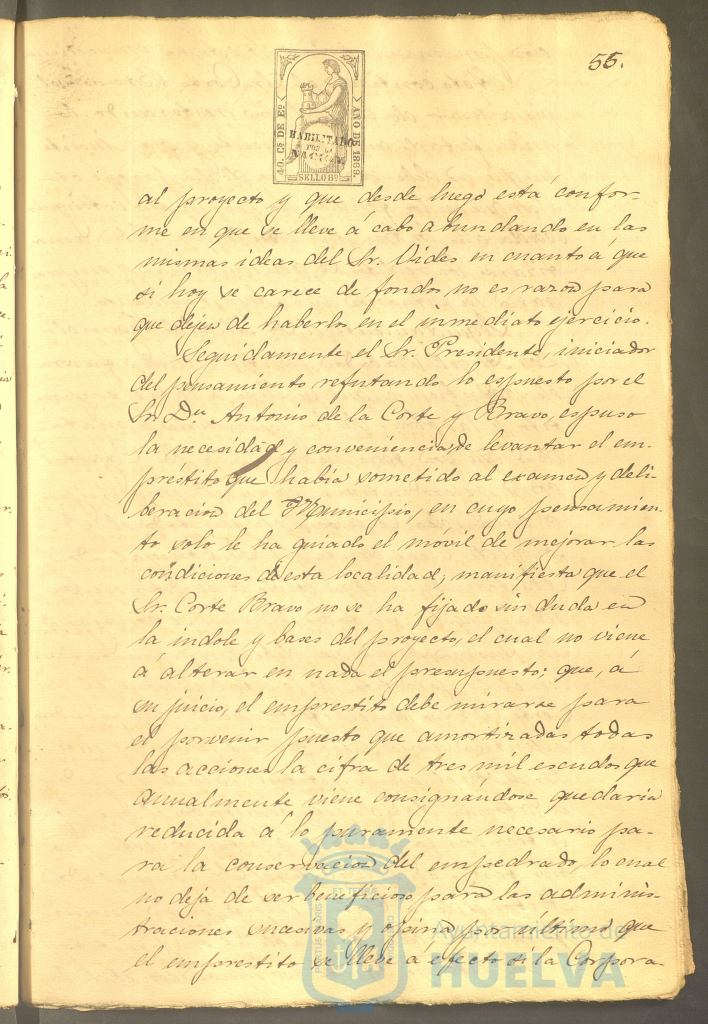 55.
40. Cs DE Eº
AÑO DE 1869.
HABILITADO
POR LA
NACION.
SELLO 8º
al proyecto y que desde luego está confor-
me en que se lleve á cabo abundando en las
mismas ideas del Sr. Vides en cuanto á que
si hoy se carece de fondos no es razon para
que dejen de haberlos en el inmediato ejercicio.
Seguidamente el Sr. Presidente, iniciador
del pensamiento refutando lo espuesto por el
Sr. Dn. Antonio de la Corte y Bravo, espuso
la necesidad y conveniencia de levantar el em-
préstito que habia sometido al examen y deli-
beracion del Municipio, en cuyo pensamien-
to solo le ha guiado el móvil de mejorar las
condiciones de esta localidad; manifiesta que el
Sr. Corte Bravo no se ha fijado sin duda en
la indole y bases del proyecto, el cual no viene
á alterar en nada el presupuesto; que, á
su juicio, el emprestito debe mirarse para
el porvenir puesto que amortizadas todas
las acciones la cifra de tres mil escudos que
anualmente viene consignándose quedaria
reducida á lo puramente necesario pa-
ra la conservacion del empedrado, lo cual
no deja de ser beneficioso para las adminis-
traciones sucesivas y opina por último que
el emprestito se lleve á efecto si la Corpora-
Ayuntamiento de
HUELVA